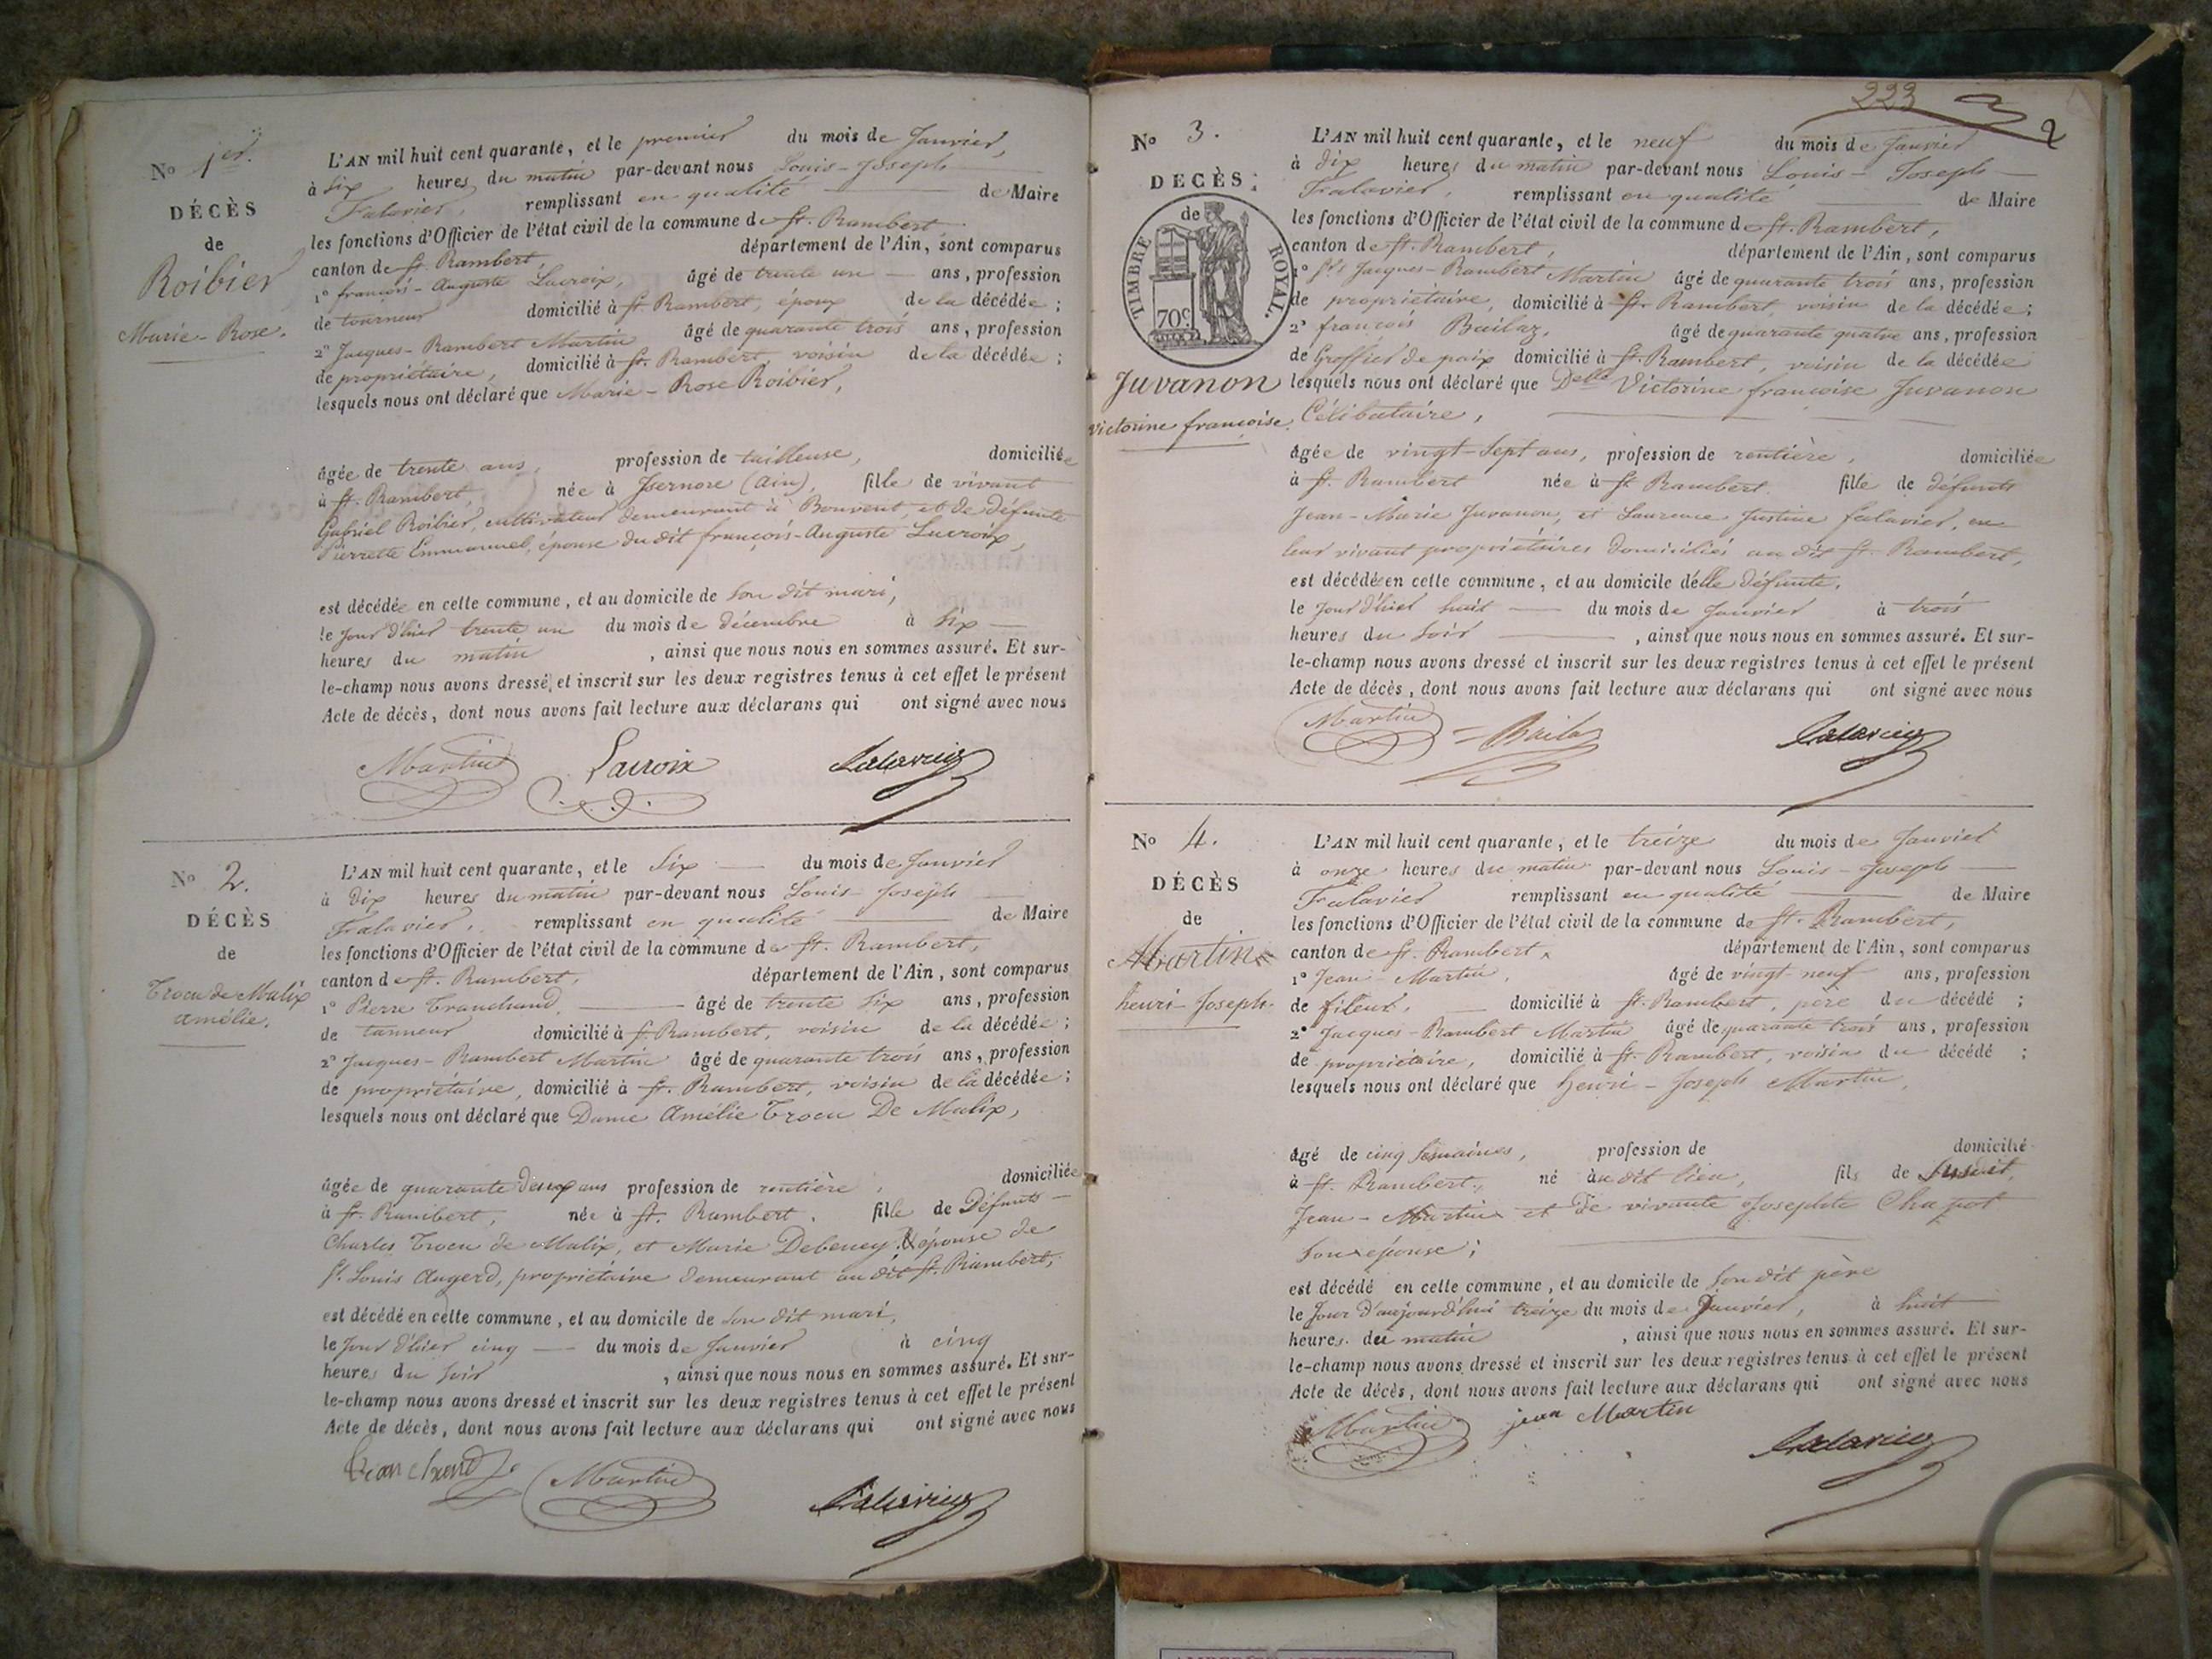 No 1er.
DÉCÈS
de
Roibier
Marie-Rose.
L'AN mil huit cent quarante, et le premier du mois de Janvier,
à dix heures du matin par-devant nous Louis-Joseph
Falavier, remplissant en qualité de Maire
les fonctions d'Officier de l'état civil de la commune de St. Rambert,
canton de St. Rambert, département de l'Ain, sont comparus
1° françois-Auguste Lacroix, âgé de trente un ans, profession
de tourneur domicilié à St. Rambert, époux de la décédée;
2° Jacques-Rambert Martin âgé de quarante trois ans, profession
de propriétaire, domicilié à St. Rambert, voisin de la décédée;
lesquels nous ont déclaré que Marie-Rose Roibier,
âgée de trente ans, profession de tailleuse, domiciliée
à St. Rambert, née à Isernore (Ain), fille de vivant
Gabriel Roibier, cultivateur demeurant à Bouvent, et de défunte
Pierrette Emmanuel, épouse du dit françois-Auguste Lacroix,
est décédée en cette commune, et au domicile de son dit mari,
le jour d'hier trente un du mois de décembre à six
heures du matin, ainsi que nous nous en sommes assuré. Et sur-
le-champ nous avons dressé et inscrit sur les deux registres tenus à cet effet le présent
Acte de décès, dont nous avons fait lecture aux déclarans qui ont signé avec nous
Martin Lacroix Falavier
No 2.
DÉCÈS
de
Trocu de Malix
amélie.
L'AN mil huit cent quarante, et le Six du mois de Janvier
à Dix heures du matin par-devant nous Louis-Joseph
Falavier, remplissant en qualité de Maire
les fonctions d'Officier de l'état civil de la commune de St. Rambert,
canton de St. Rambert, département de l'Ain, sont comparus
1° Pierre Tranchand, âgé de trente six ans, profession
de tanneur domicilié à St. Rambert, voisin de la décédée;
2° Jacques-Rambert Martin âgé de quarante trois ans, profession
de propriétaire, domicilié à St. Rambert, voisin de la décédée;
lesquels nous ont déclaré que Dame Amélie Trocu De Malix,
âgée de quarante deux ans profession de rentière, domiciliée
à St. Rambert, née à St. Rambert. fille de Défunts
Charles Trocu de Malix, et Marie Debeney, épouse de
Sr. Louis Augerd, propriétaire demeurant au dit St. Rambert,
est décédé en cette commune, et au domicile de son dit mari,
le jour d'hier cinq du mois de Janvier à cinq
heures du soir, ainsi que nous nous en sommes assuré. Et sur-
le-champ nous avons dressé et inscrit sur les deux registres tenus à cet effet le présent
Acte de décès, dont nous avons fait lecture aux déclarans qui ont signé avec nous
Tranchand Martin Falavier
223
2
No 3.
DÉCÈS
de
TIMBRE ROYAL.
70c.
Juvanon
victorine françoise.
L'AN mil huit cent quarante, et le neuf du mois de Janvier
à dix heures du matin par-devant nous Louis-Joseph
Falavier, remplissant en qualité de Maire
les fonctions d'Officier de l'état civil de la commune de St. Rambert,
canton de St. Rambert, département de l'Ain, sont comparus
1° Jacques-Rambert Martin âgé de quarante trois ans, profession
de propriétaire, domicilié à St. Rambert, voisin de la décédée;
2° françois Bailaz, âgé de quarante quatre ans, profession
de Greffier de paix domicilié à St. Rambert, voisin de la décédée
lesquels nous ont déclaré que Delle Victorine françoise Juvanon
Célibataire,
âgée de vingt-sept ans, profession de rentière, domiciliée
à St. Rambert née à St. Rambert. fille de défunts
Jean-Marie Juvanon, et Laurence Justine falavier, en
leur vivant propriétaires domiciliés au dit St. Rambert,
est décédée en cette commune, et au domicile d'elle défunte,
le jour d'hier huit du mois de Janvier à trois
heures du soir, ainsi que nous nous en sommes assuré. Et sur-
le-champ nous avons dressé et inscrit sur les deux registres tenus à cet effet le présent
Acte de décès, dont nous avons fait lecture aux déclarans qui ont signé avec nous
Martin Bailaz Falavier
No 4.
DÉCÈS
de
Martin
henri-Joseph.
L'AN mil huit cent quarante, et le treize du mois de Janvier
à onze heures du matin par-devant nous Louis-Joseph
Falavier remplissant en qualité de Maire
les fonctions d'Officier de l'état civil de la commune de St. Rambert,
canton de St. Rambert, département de l'Ain, sont comparus
1° Jean-Martin, âgé de vingt neuf ans, profession
de fileur, domicilié à St. Rambert, père du décédé;
2° Jacques-Rambert Martin âgé de quarante trois ans, profession
de propriétaire, domicilié à St. Rambert, voisin du décédé;
lesquels nous ont déclaré que henri-Joseph Martin,
âgé de cinq semaines, profession de domicilié
à St. Rambert, né au dit lieu, fils de susdit,
Jean-Martin et de vivante Josephte Chapot
son épouse;
est décédé en cette commune, et au domicile de son dit père
le Jour d'aujourd'hui treize du mois de Janvier, à huit
heures du matin, ainsi que nous nous en sommes assuré. Et sur-
le-champ nous avons dressé et inscrit sur les deux registres tenus à cet effet le présent
Acte de décès, dont nous avons fait lecture aux déclarans qui ont signé avec nous
Martin jean Martin Falavier